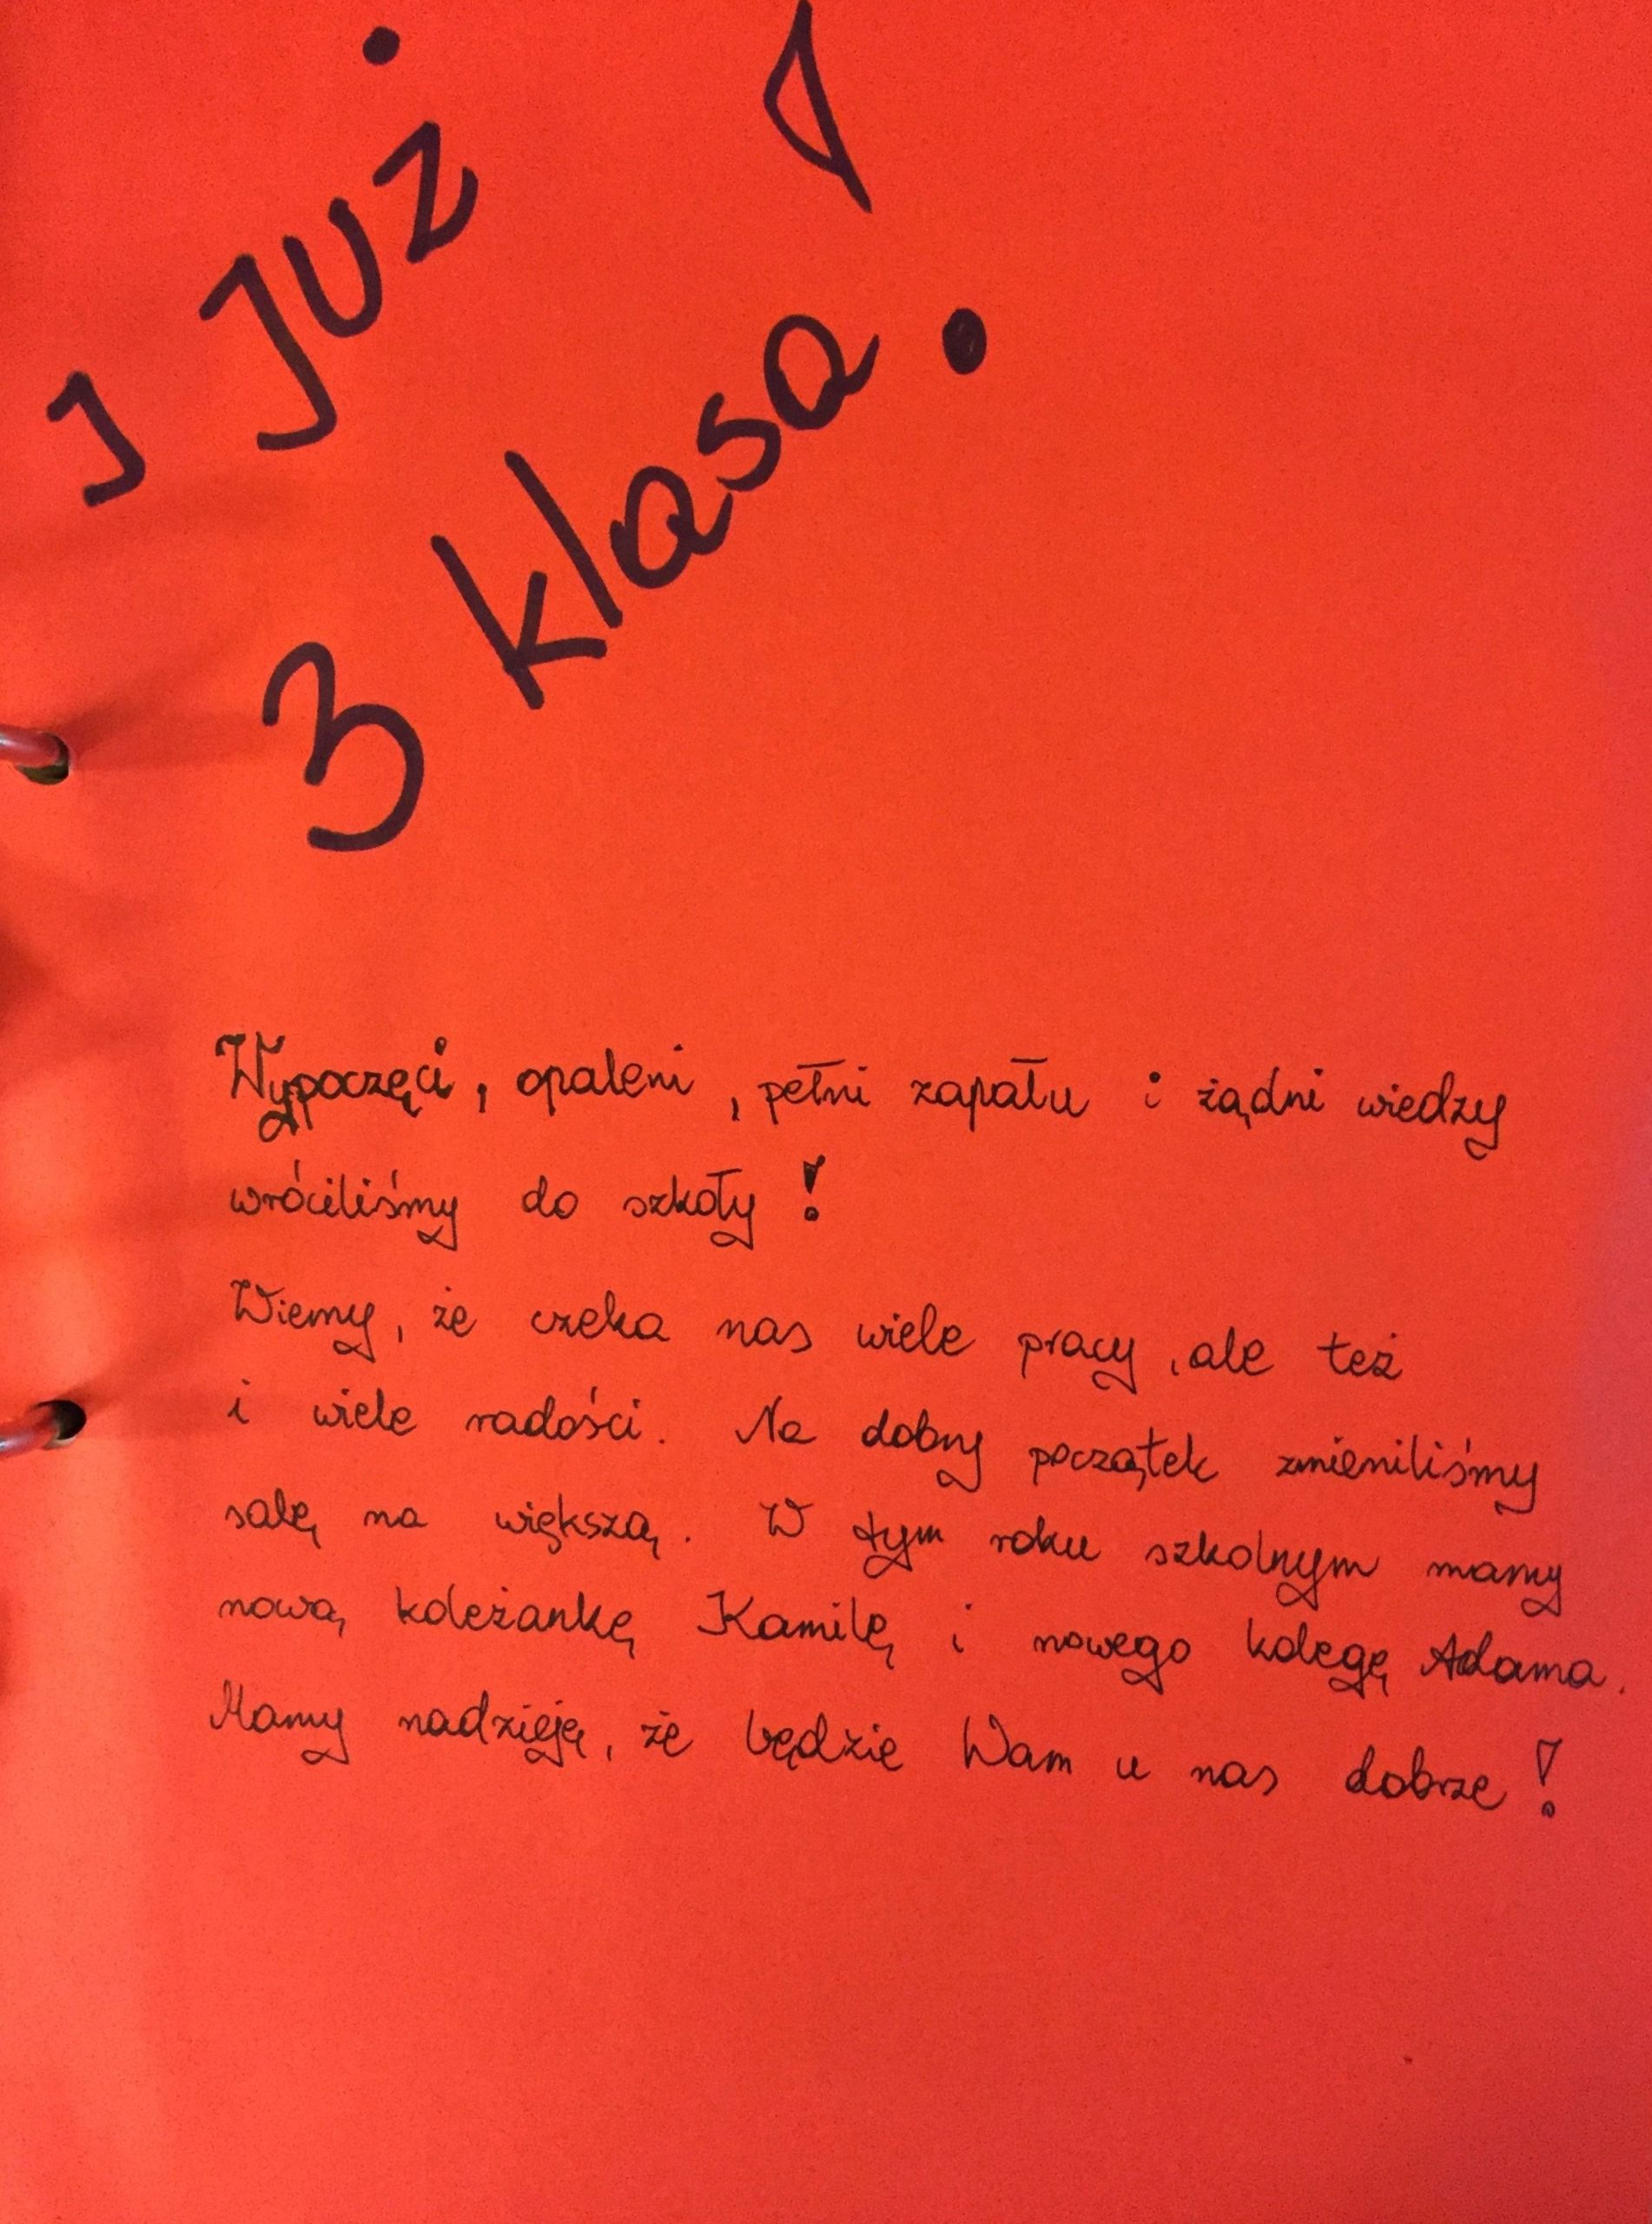 I JUŻ
3 klasa!
Wypoczęci, opaleni, pełni zapału i żądni wiedzy
wróciliśmy do szkoły!
Wiemy, że czeka nas wiele pracy, ale też
i wiele radości. Na dobry początek zmieniliśmy
salę na większą. W tym roku szkolnym mamy
nową koleżankę Kamilę i nowego kolegę Adama.
Mamy nadzieję, że będzie Wam u nas dobrze!